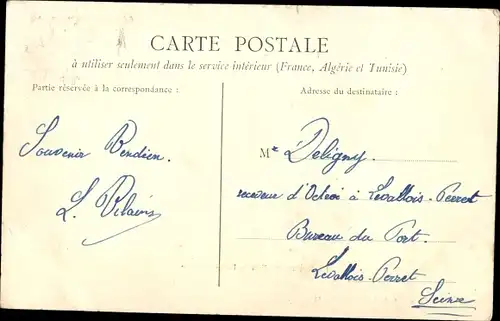 CARTE POSTALE
à utiliser seulement dans le service intérieur (France, Algérie et Tunisie)
Partie réservée à la correspondance :
Adresse du destinataire :
Souvenir Vendéen.
L. Vilains
Mr Deligny.
receveur d'Octroi à Levallois-Perret
Bureau du Port.
Levallois-Perret
Seine